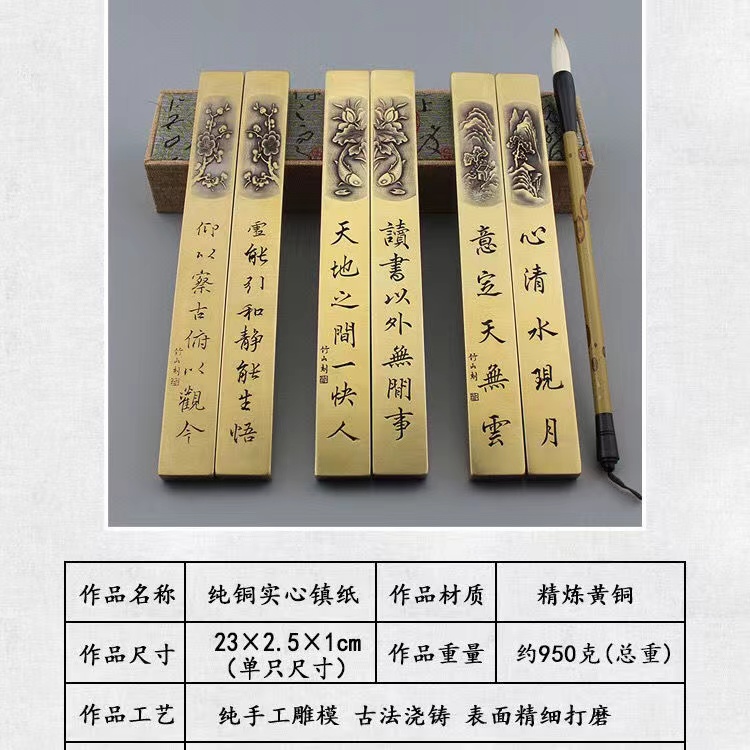 虚能引和静能生悟
仰以察古俯以觀今
竹山制
讀書以外無閒事
天地之間一快人
竹山制
心清水現月
意定天無雲
竹山制
作品名称 纯铜实心镇纸 作品材质 精炼黄铜
作品尺寸 23×2.5×1cm (单只尺寸) 作品重量 约950克(总重)
作品工艺 纯手工雕模 古法浇铸 表面精细打磨